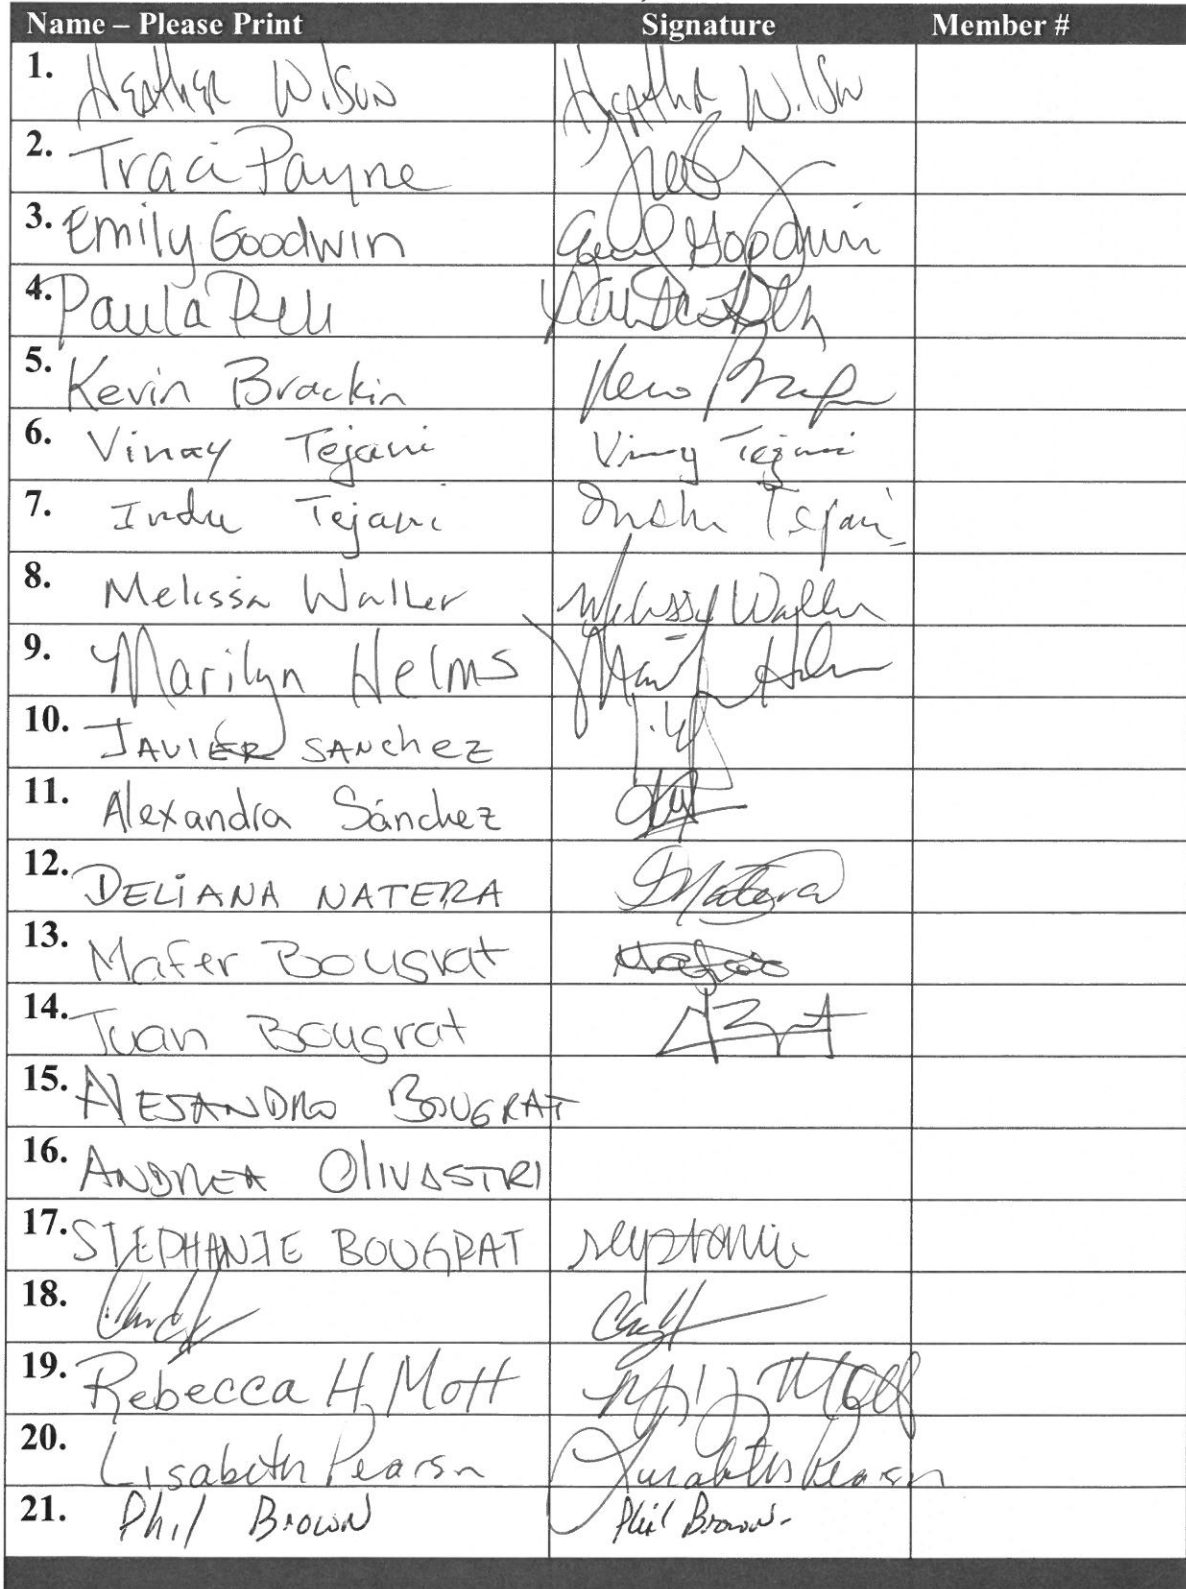 Name – Please Print Signature Member #
1. Heather Wilson Heather Wilson
2. Traci Payne
3. Emily Goodwin Goodwin
4. Paula
5. Kevin Brackin
6. Vinay Tejani Vinay Tejani
7. Indu Tejani Indu Tejani
8. Melissa Waller Melissa Waller
9. Marilyn Helms
10. JAVIER SANCHEZ
11. Alexandra Sánchez
12. DELIANA NATERA DNatera
13. Mafer Bougrat
14. Juan Bougrat
15. ALEJANDRO BOUGRAT
16. ANDREA OLIVASTRI
17. STEPHANIE BOUGRAT
18.
19. Rebecca H. Mott
20. Lisabeth Pearson Lisabeth Pearson
21. Phil Brown Phil Brown